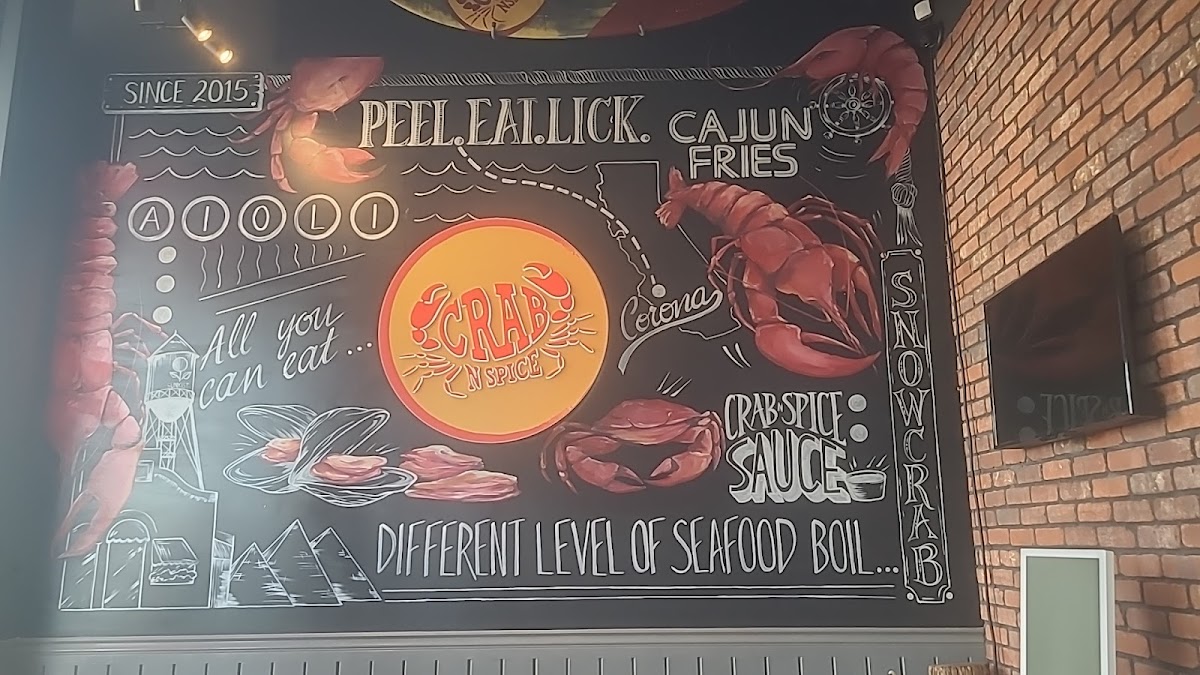 SINCE 2015
PEEL.EAT.LICK.
CAJUN
FRIES
AIOLI
All you
can eat...
CRAB
N SPICE
Corona
CRAB N SPICE
SAUCE
SNOWCRAB
DIFFERENT LEVEL OF SEAFOOD BOIL...